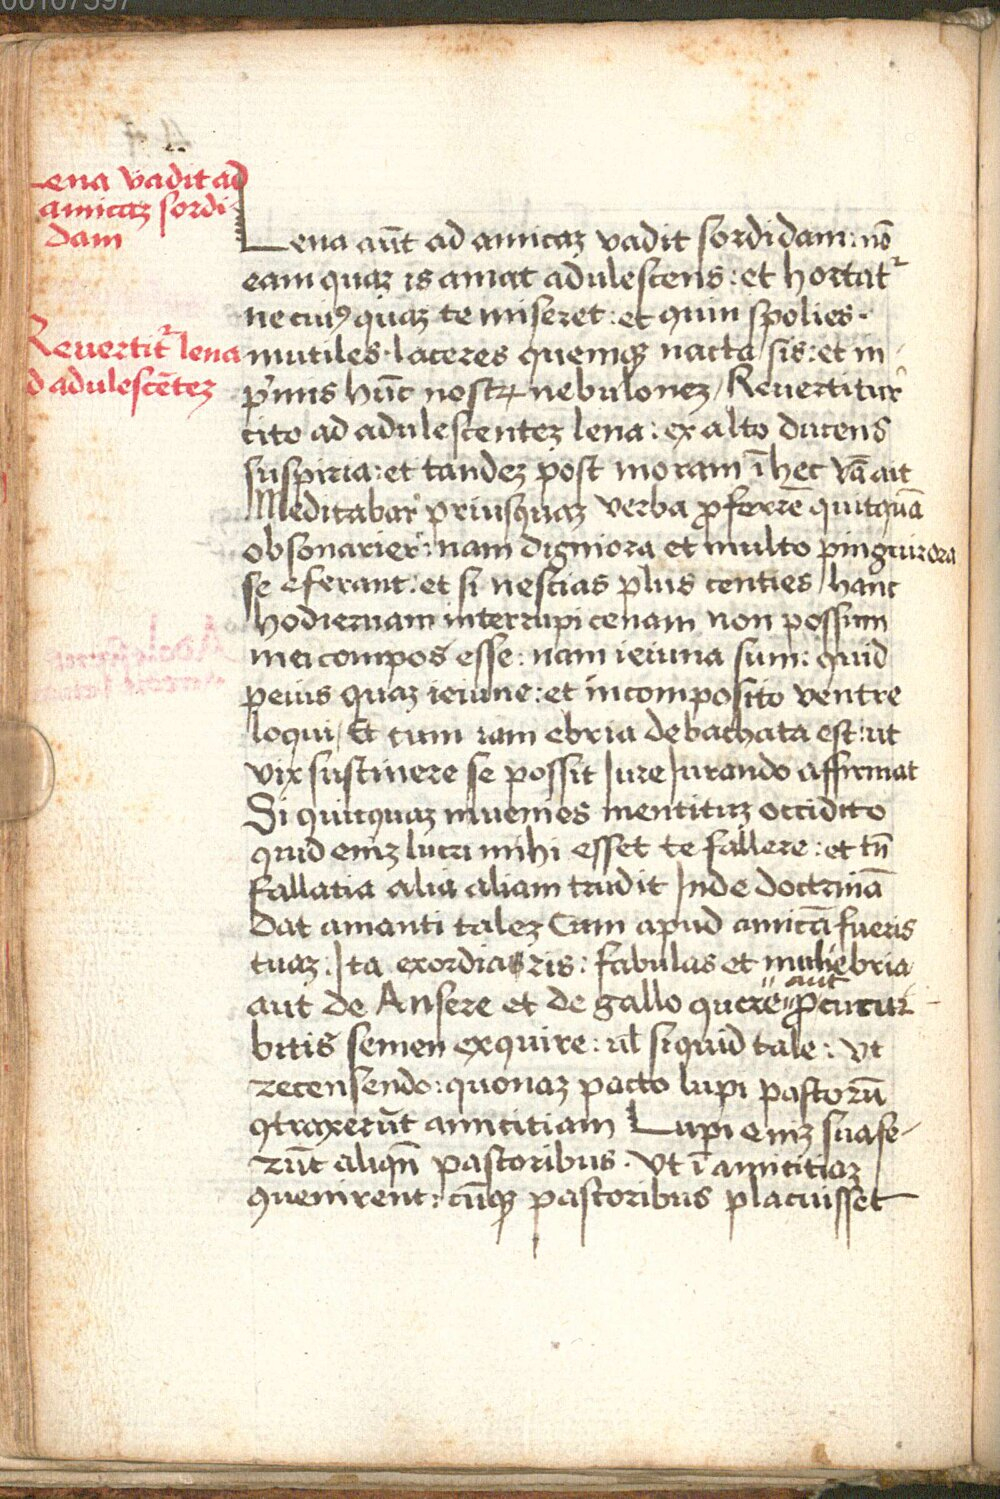 00107397
Lena vadit ad
amicaz sordi-
dam
Lena aūt ad amicaz vadit sordidam: nō
eam quaz is amat adulescens: et hortat᷑
ne cuiꝰquaz te miseret: et quin spolies·
Reuertit᷑ lena
mutiles· laceres quemqꝫ nacta sis: et in
d adulescētez
p̄mis hūc nostꝝ nebulonez / Reuertitur
cito ad adulescentez lena: ex alto ducens
suspiria: et tandez post moram ī hec v̄a ait
Meditabar priusquaz verba ꝓferrē quitquā
obsonarier: nam digniora et multo pinguiora
se efferant: et si nescias plus centies / hanc
hodiernam interrupi cenam non possum
mei compos esse: nam ieiuna sum: quid
peius quaz ieiune: et incomposito ventre
loqui / Et cum iam ebria debachata est: ut
vix sustinere se possit Jure Jurando affirmat
Si quicquaz inuenies mentituz occidito
quid eniz lucri mihi esset te fallere: et tn̄
fallatia alia aliam trudit Jnde doctrinā
dat amanti talez Cum apud amicā fueris
tuaz. Jta exordiaris: fabulas et muliebria
aut
aut de Ansere et de gallo querē ꝓ cucur
bitis semen exquire: ul̄ siquid tale: vt
recensendo: quonaz pacto lupi pastorū
ꝯtraxerūt amicitiam Lupi eniz suase-
rūt aliqn̄ pastoribus· vt ī amicitiaz
ꝯuenirent: cūqꝫ pastoribus placuisset